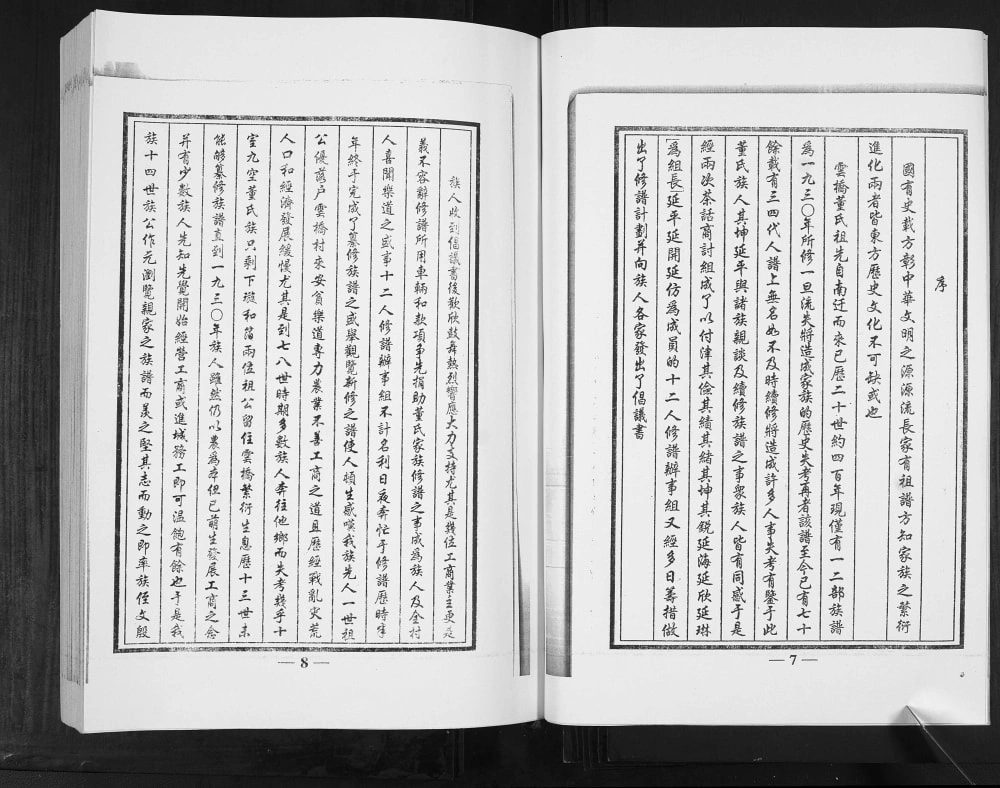 序
國有史載方彰中華文明之源源流長家有祖譜方知家族之繁衍
進化兩者皆東方歷史文化不可缺或也
雲橋董氏祖先自南迁而來已歷二十世約四百年現僅有一二部族譜
爲一九三〇年所修一旦流失將造成家族的歷史失考再者該譜至今已有七十
餘載有三四代人譜上無名如不及時續修將造成許多人事失考有鑒于此
董氏族人其坤延平與諸族親談及續修族譜之事衆族人皆有同感于是
經兩次茶話商討組成了以付津其儉其績其緒其坤其銳延海延欣延琳
[爲組長]延平延開延仿爲成員的十二人修譜辦事組又經多日籌措做
出了修譜計劃并向族人各家發出了倡議書
— 7 —
族人收到倡議書後歡欣鼓舞熱烈響應大力支持尤其是幾位工商業主更是
義不容辭修譜所用車輛和款項争先捐助董氏家族修譜之事成爲族人及全村
人喜聞樂道之盛事十二人修譜辦事組不計名利日夜奔忙于修譜歷時半
年終于完成了纂修族譜之盛舉觀覽新修之譜使人頓生感嘆我族先人一世祖
公優落户雲橋村來安貧樂道專力農業不善工商之道且歷經戰亂灾荒
人口和經濟發展緩慢尤其是到七八世時期多數族人奔往他鄉而失考幾乎十
室九空董氏族只剩下璇和瑫兩位祖公留住雲橋繁衍生息歷十三世未
能醞纂修族譜直到一九三〇年族人雖然仍以農爲本但已萌生發展工商之念
并有少數族人先知先覺開始經營工商或進城務工即可温飽有餘也于是我
族十四世族公作元瀏覽親家之族譜而羡之堅其志而動之即率族侄文殷
— 8 —